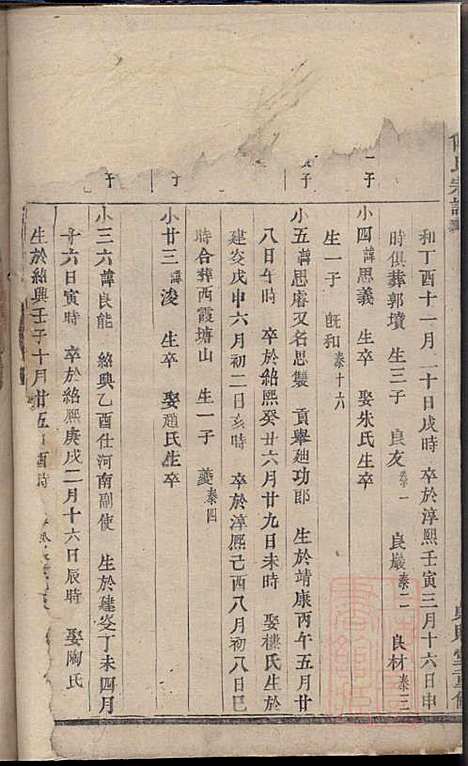 氏宗譜
和丁酉十一月二十日戌時 卒於淳熙壬寅三月十六日申
時俱葬郭墳 生三子 良友 泰一 良巖 泰二 良材 泰三
小四 諱思義 生卒 娶朱氏生卒
生一子 旣和 泰十六
小五 諱思睿又名思製 貢舉廸功郎 生於靖康丙午五月廿
八日午時 卒於紹熙癸丑六月廿九日未時 娶樓氏生於
建炎戊申六月初二日亥時 卒於淳熙己酉八月初八日巳
時合葬西霞塘山 生一子 羲 泰四
小廿三 諱浚 生卒 娶趙氏生卒
小三六 諱良能 紹興乙酉仕河南副使 生於建炎丁未四月
十六日寅時 卒於紹熙庚戌二月十六日辰時 娶陶氏
生於紹興壬子十月廿五日酉時
一子
子
子
子